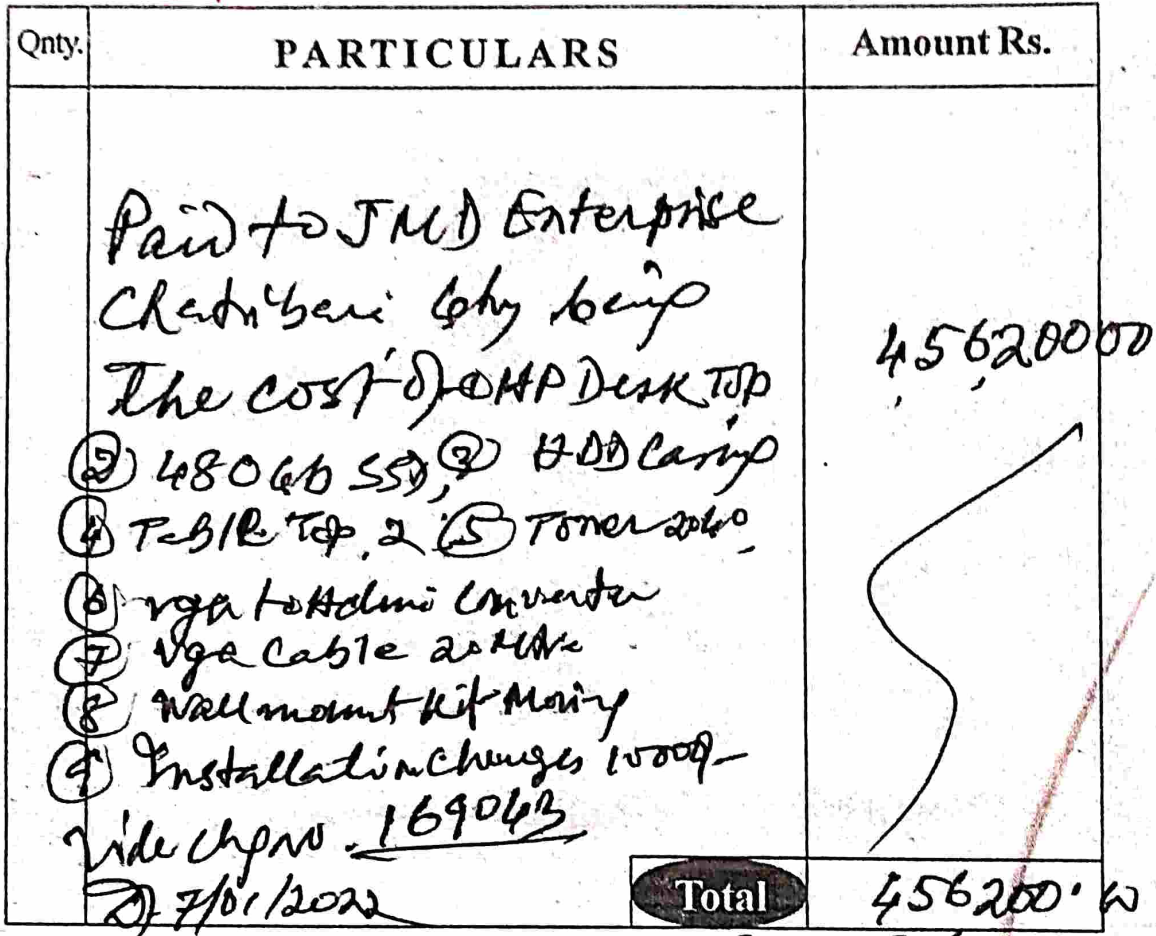 Qnty. PARTICULARS Amount Rs.
Paid to JMD Enterprise
Chatribari Ghy being
The cost of ① HP Desk Top 4,56,20000
② 480 GB SSD, ③ HDD Casing
④ Top, 2 ⑤ Toner 2040
⑥ vga to Hdmi Converter
⑦ Vga Cable 20 Mtr
⑧ Wall mount Kit Moving
⑨ Installation Charges
Vide chq no. 169043
D) 7/01/2022
Total 456200.00